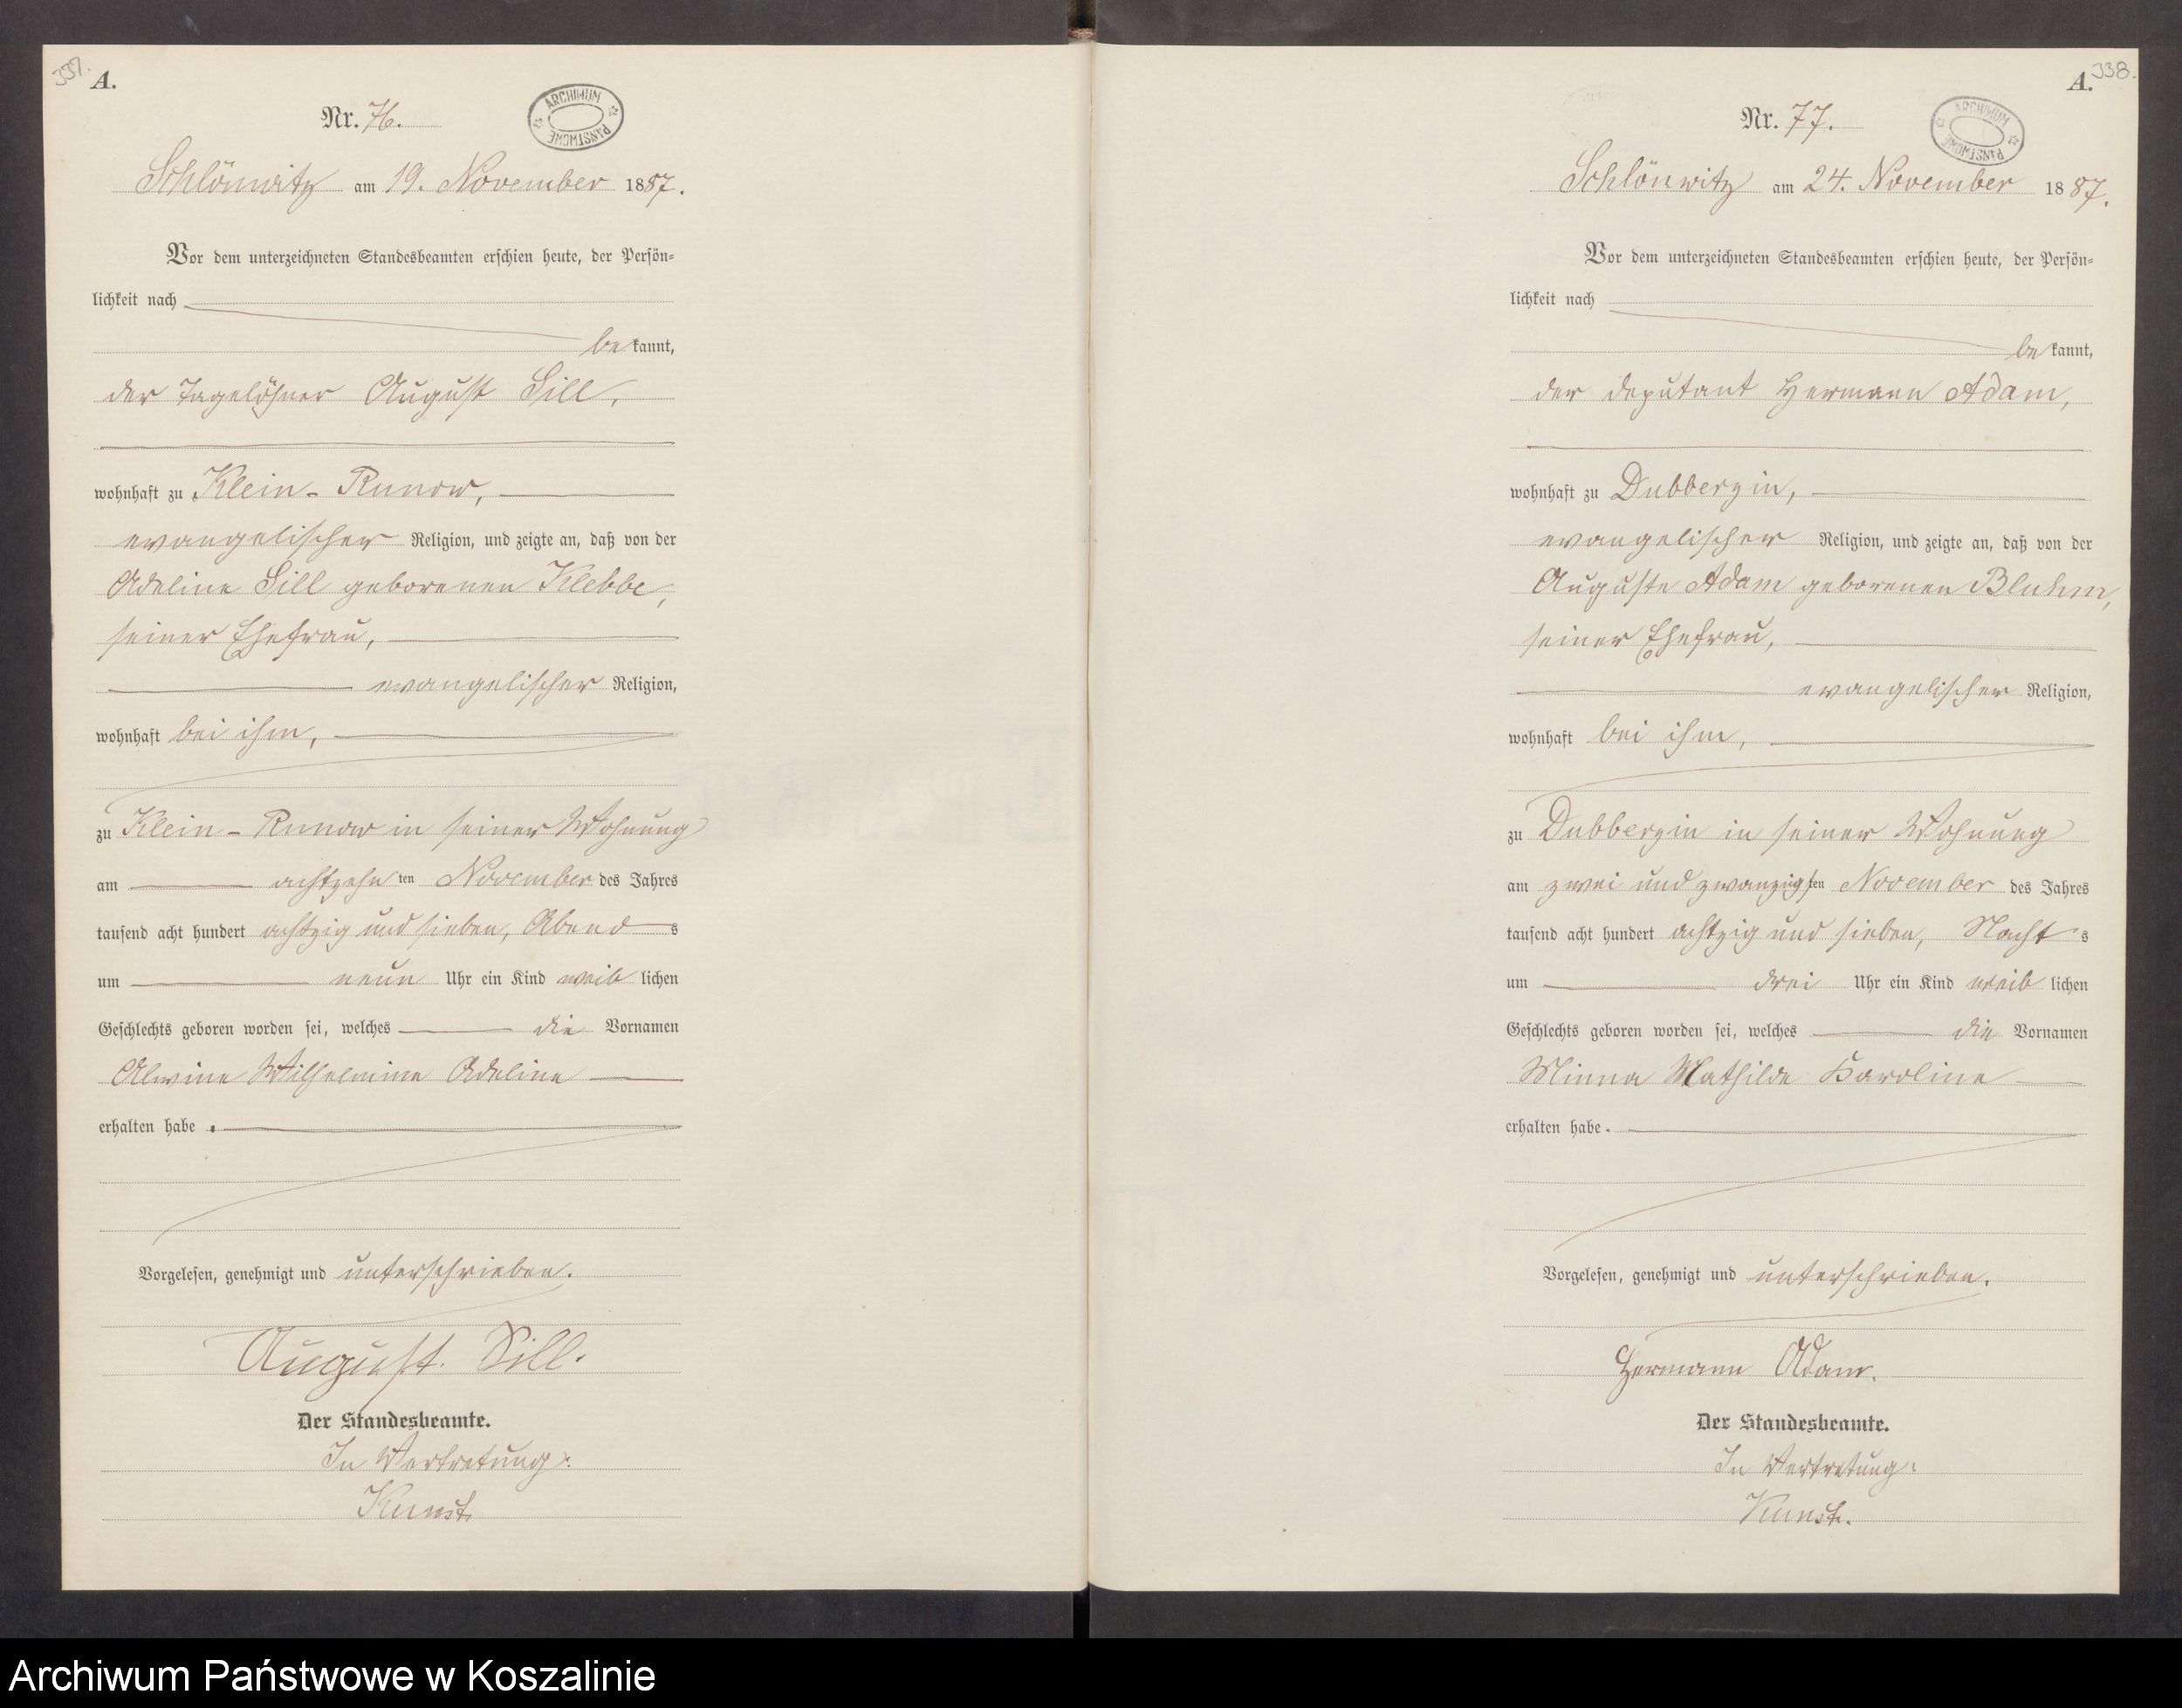 337.
A.
Nr. 76.
ARCHIWUM PAŃSTWOWE
Schlönwitz am 19. November 1887.
Vor dem unterzeichneten Standesbeamten erschien heute, der Persön-
lichkeit nach
bekannt,
der Tagelöhner August Sill,
wohnhaft zu Klein-Runow,
evangelischer Religion, und zeigte an, daß von der
Adeline Sill geborenen Klebbe,
seiner Ehefrau,
evangelischer Religion,
wohnhaft bei ihm,
zu Klein-Runow in seiner Wohnung
am achtzehnten November des Jahres
tausend acht hundert achtzig und sieben, Abends
um neun Uhr ein Kind weiblichen
Geschlechts geboren worden sei, welches die Vornamen
Alwine Wilhelmine Adeline
erhalten habe.
Vorgelesen, genehmigt und unterschrieben.
August. Sill.
Der Standesbeamte.
In Vertretung:
Kunst.
338.
A.
Nr. 77.
ARCHIWUM PAŃSTWOWE
Schlönwitz am 24. November 1887.
Vor dem unterzeichneten Standesbeamten erschien heute, der Persön-
lichkeit nach
bekannt,
der Deputant Hermann Adam,
wohnhaft zu Dubberzin,
evangelischer Religion, und zeigte an, daß von der
Auguste Adam geborenen Bluhm,
seiner Ehefrau,
evangelischer Religion,
wohnhaft bei ihm,
zu Dubberzin in seiner Wohnung
am zwei und zwanzigsten November des Jahres
tausend acht hundert achtzig und sieben, Nachts
um drei Uhr ein Kind weiblichen
Geschlechts geboren worden sei, welches die Vornamen
Minna Mathilde Karoline
erhalten habe.
Vorgelesen, genehmigt und unterschrieben.
Hermann Adam.
Der Standesbeamte.
In Vertretung:
Kunst.
Archiwum Państwowe w Koszalinie